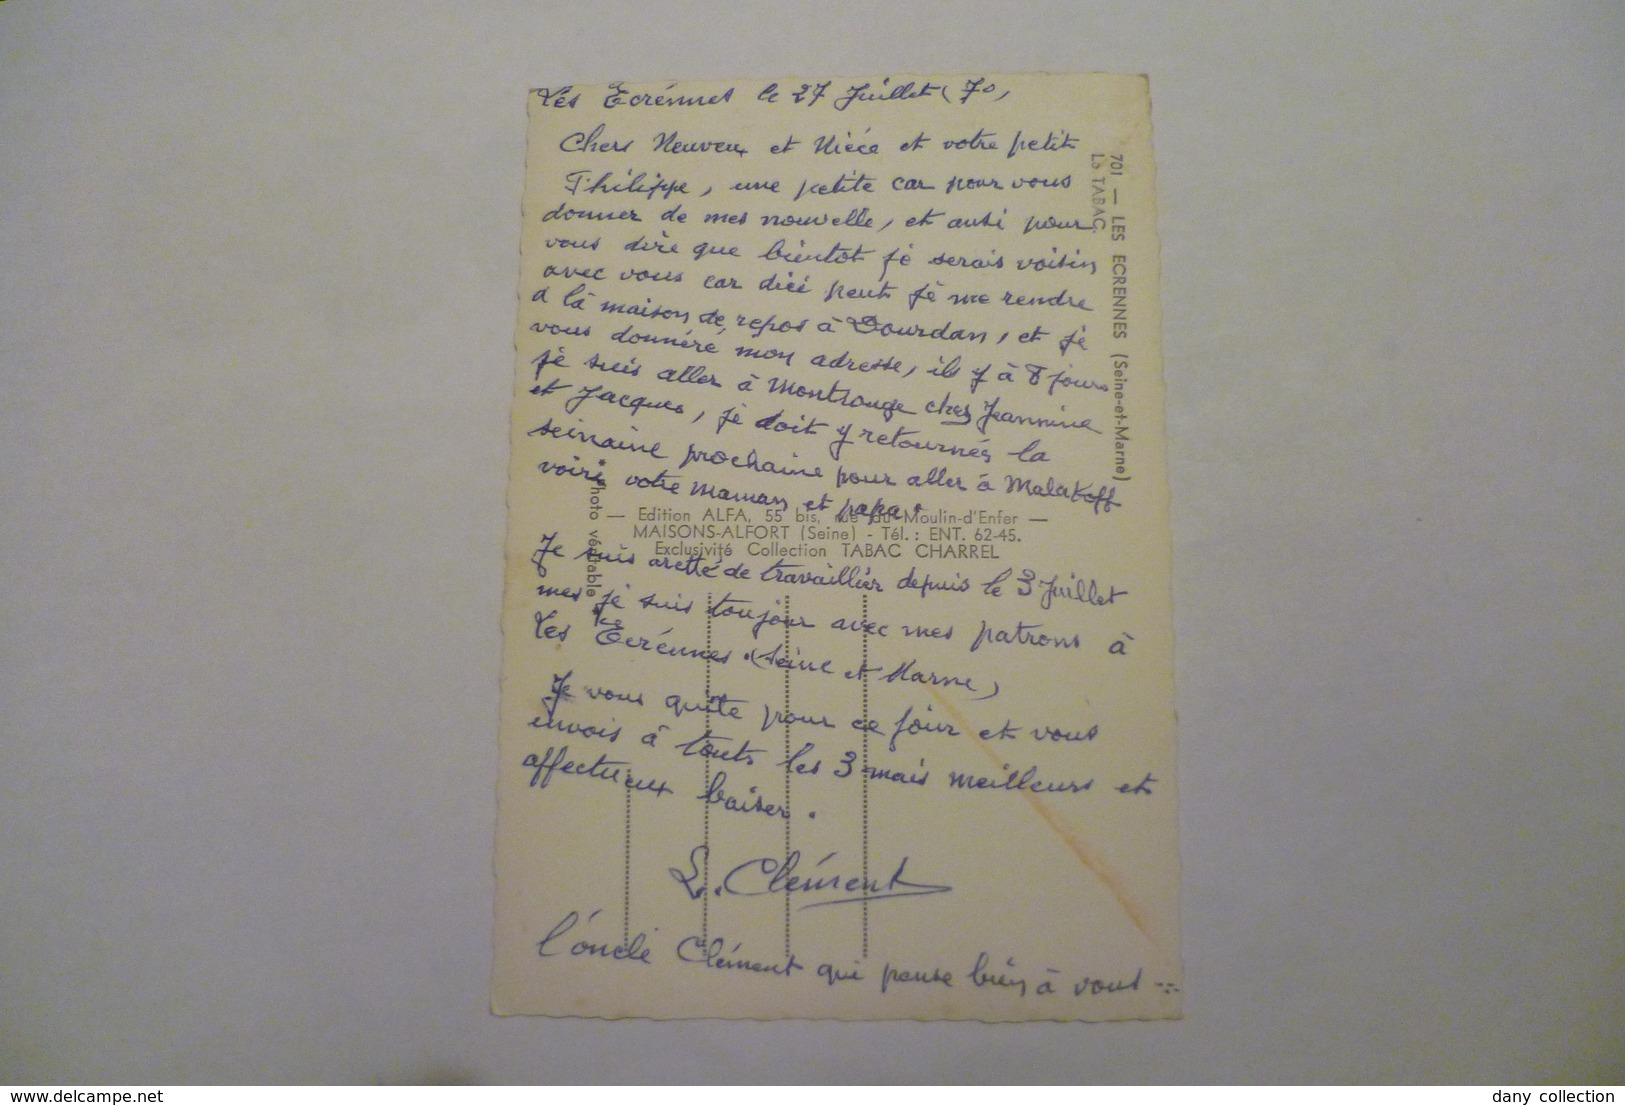 Lés Ecrénnes le 27 Juillet 70,
Chers Neuveux et Niéce et votre petit
Philippe, une petite car pour vous
donner de mes nouvelle, et ausi pour
vous dire que bientot je serais voisin
avec vous car dici peut jé me rendre
a la maison de repos à Dourdan, et jé
vous donnéré mon adresse, ils y à 8 jours
jé suis aller à Montrouge chez Jeannine
et Jacques, jé doit y retournés la
semaine prochaine pour aller à Malakoff
voire votre maman et papa.
Je suis aretté de travaillier depuis le 3 Juillet
mes je suis toujour avec mes patrons à
Les Ecrénnes (Seine et Marne)
Je vous quite pour ce jour et vous
envois à touts les 3 mais meilleurs et
affectueux baiser.
L. Clément
l'óncle Clément qui pense bien à vous
701 — LES ECRENNES (Seine-et-Marne)
Le TABAC.
— Edition ALFA, 55 bis, rue du Moulin-d'Enfer —
MAISONS-ALFORT (Seine) - Tél. : ENT. 62-45.
Exclusivité Collection TABAC CHARREL
Photo véritable
www.delcampe.net
dany collection